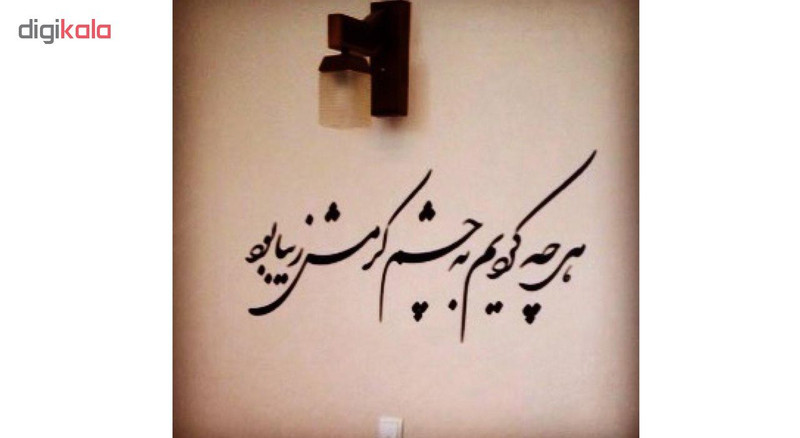 digikala
هر چه کردیم به چشم کرمش زیبا بود